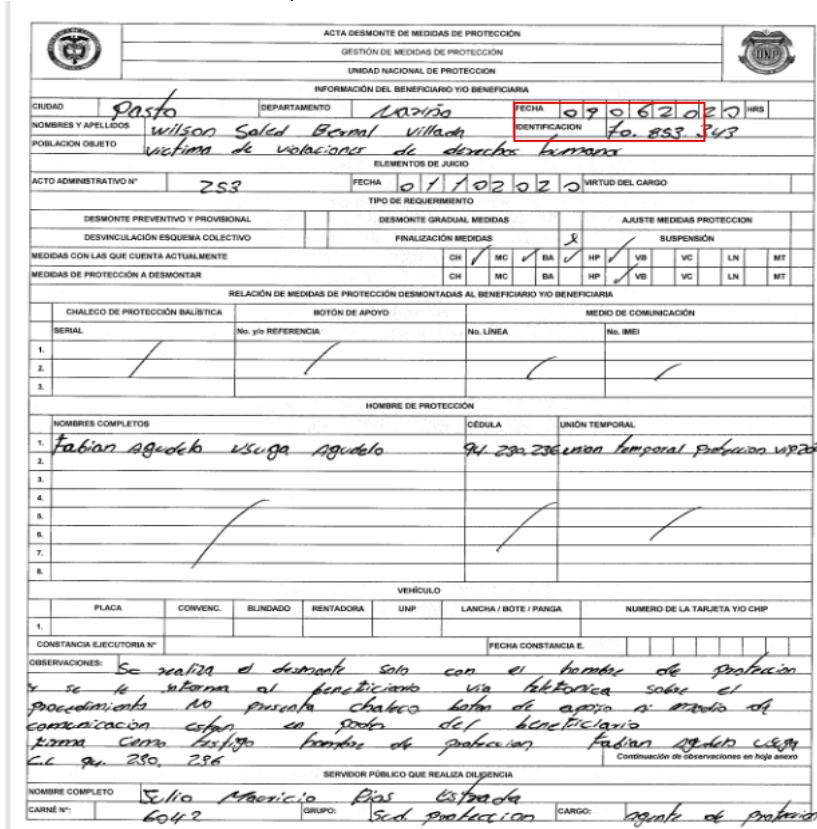 ACTA DESMONTE DE MEDIDAS DE PROTECCIÓN
GESTIÓN DE MEDIDAS DE PROTECCIÓN
UNIDAD NACIONAL DE PROTECCION
UNP
INFORMACIÓN DEL BENEFICIARIO Y/O BENEFICIARIA
CIUDAD Pasto DEPARTAMENTO Nariño FECHA 09062020 HRS
NOMBRES Y APELLIDOS Wilson Saled Bernal Villada IDENTIFICACION 70. 853. 343
POBLACION OBJETO victima de violaciones de derechos humanos
ELEMENTOS DE JUICIO
ACTO ADMINISTRATIVO N° 253 FECHA 01102020 VIRTUD DEL CARGO
TIPO DE REQUERIMIENTO
DESMONTE PREVENTIVO Y PROVISIONAL DESMONTE GRADUAL MEDIDAS AJUSTE MEDIDAS PROTECCION
DESVINCULACIÓN ESQUEMA COLECTIVO FINALIZACIÓN MEDIDAS SUSPENSIÓN
MEDIDAS CON LAS QUE CUENTA ACTUALMENTE CH MC BA HP VB VC LN MT
MEDIDAS DE PROTECCIÓN A DESMONTAR CH MC BA HP VB VC LN MT
RELACIÓN DE MEDIDAS DE PROTECCIÓN DESMONTADAS AL BENEFICIARIO Y/O BENEFICIARIA
CHALECO DE PROTECCIÓN BALÍSTICA BOTÓN DE APOYO MEDIO DE COMUNICACIÓN
SERIAL No. y/o REFERENCIA No. LÍNEA No. IMEI
1.
2.
3.
HOMBRE DE PROTECCIÓN
NOMBRES COMPLETOS CÉDULA UNIÓN TEMPORAL
1. Fabian Agudelo Usuga Agudelo 94. 230. 236 union temporal proteccion
2.
3.
4.
5.
6.
7.
8.
VEHÍCULO
PLACA CONVENC. BLINDADO RENTADORA UNP LANCHA / BOTE / PANGA NUMERO DE LA TARJETA Y/O CHIP
1.
CONSTANCIA EJECUTORIA N° FECHA CONSTANCIA E.
OBSERVACIONES: Se realiza el desmonte solo con el hombre de proteccion
y se le informa al beneficiario via telefonica sobre el
procedimiento No presenta chaleco boton de apoyo ni medio de
comunicacion estan en poder del beneficiario
firma como testigo hombre de proteccion Fabian Agudelo Usuga
C.C 94. 230. 236 Continuación de observaciones en hoja anexo
SERVIDOR PÚBLICO QUE REALIZA DILIGENCIA
NOMBRE COMPLETO Julio Mauricio Rios Estrada
CARNÉ N°: 6042 GRUPO: Scd. proteccion CARGO: agente de proteccion